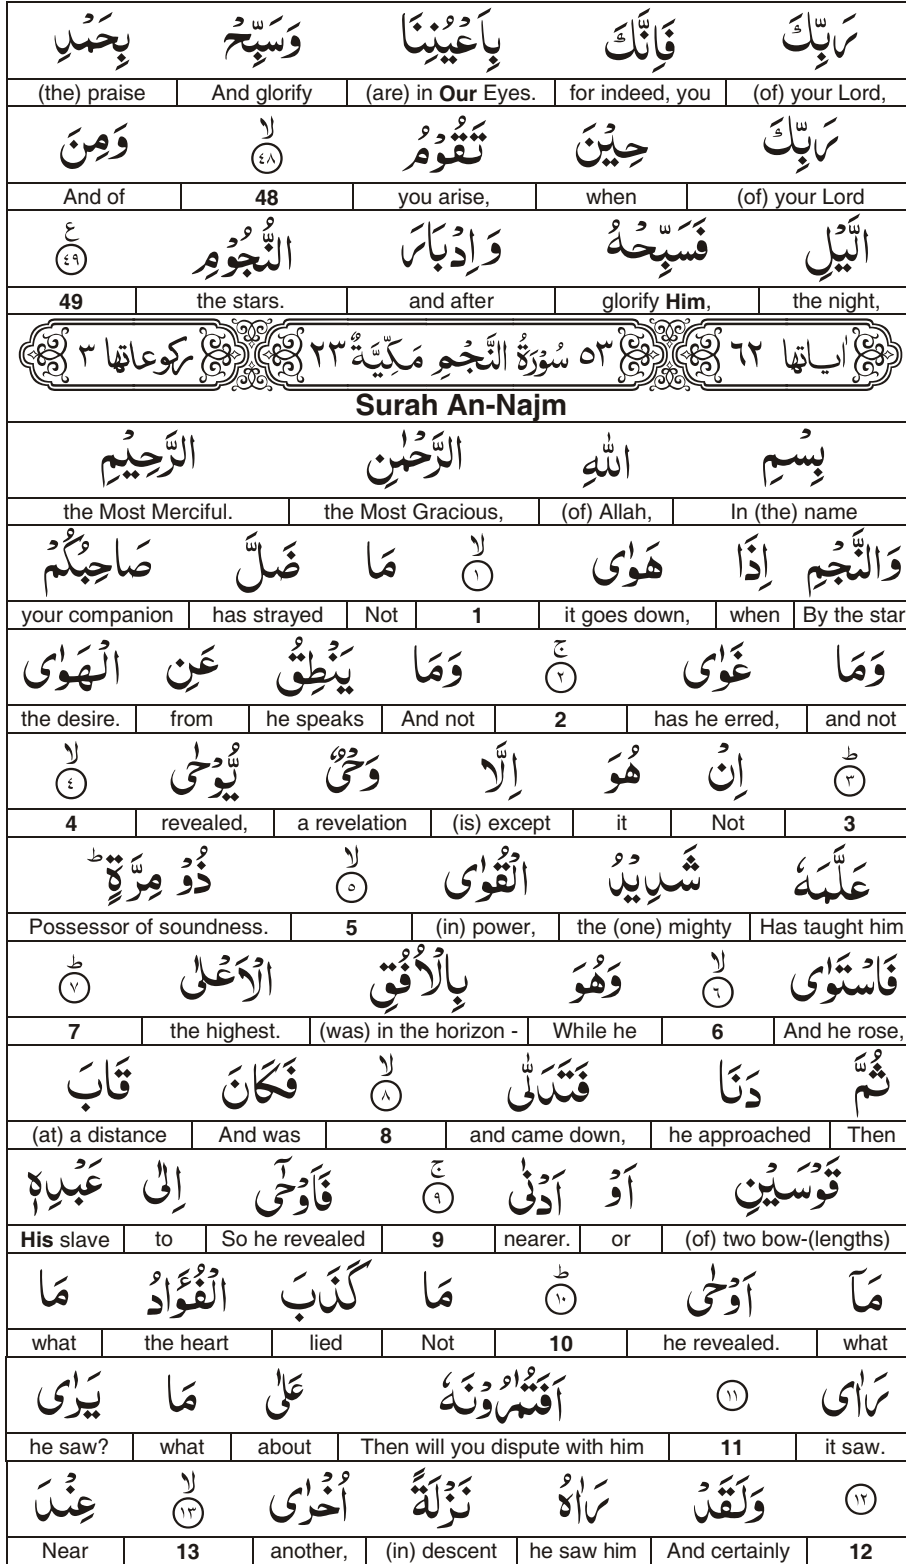 رَبِّكَ فَاِنَّكَ بِاَعۡيُنِنَا وَسَبِّحۡ بِحَمۡدِ
(of) your Lord, for indeed, you (are) in Our Eyes. And glorify (the) praise
رَبِّكَ حِيۡنَ تَقُوۡمُ ۙ‏﴿۴۸﴾ وَمِنَ
(of) your Lord when you arise, 48 And of
الَّيۡلِ فَسَبِّحۡهُ وَاِدۡبَارَ النُّجُوۡمِ ﴿۴۹﴾ ع
the night, glorify Him, and after the stars. 49
اٰياتها ٦٢ ٥٣ سُوۡرَةُ النَّجۡمِ مَكِّيَّةٌ ٢٣ ركوعاتها ٣
Surah An-Najm
بِسۡمِ اللهِ الرَّحۡمٰنِ الرَّحِيۡمِ
In (the) name (of) Allah, the Most Gracious, the Most Merciful.
وَالنَّجۡمِ اِذَا هَوٰى ۙ‏﴿۱﴾ مَا ضَلَّ صَاحِبُكُمۡ
By the star when it goes down, 1 Not has strayed your companion
وَمَا غَوٰى ۚ‏﴿۲﴾ وَمَا يَنۡطِقُ عَنِ الۡهَوٰى
and not has he erred, 2 And not he speaks from the desire.
ؕ‏﴿۳﴾ اِنۡ هُوَ اِلَّا وَحۡىٌ يُّوۡحٰى ۙ‏﴿۴﴾
3 Not it (is) except a revelation revealed, 4
عَلَّمَهٗ شَدِيۡدُ الۡقُوٰى ۙ‏﴿۵﴾ ذُوۡ مِرَّةٍ ؕ
Has taught him the (one) mighty (in) power, 5 Possessor of soundness.
فَاسۡتَوٰى ۙ‏﴿۶﴾ وَهُوَ بِالۡاُفُقِ الۡاَعۡلٰى ؕ‏﴿۷﴾
And he rose, 6 While he (was) in the horizon - the highest. 7
ثُمَّ دَنَا فَتَدَلّٰى ۙ‏﴿۸﴾ فَكَانَ قَابَ
Then he approached and came down, 8 And was (at) a distance
قَوۡسَيۡنِ اَوۡ اَدۡنٰى ۚ‏﴿۹﴾ فَاَوۡحٰٓى اِلٰى عَبۡدِهٖ
(of) two bow-(lengths) or nearer. 9 So he revealed to His slave
مَاۤ اَوۡحٰى ؕ‏﴿۱۰﴾ مَا كَذَبَ الۡفُؤَادُ مَا
what he revealed. 10 Not lied the heart what
رَاٰى ﴿۱۱﴾ اَفَتُمٰرُوۡنَهٗ عَلٰى مَا يَرٰى
it saw. 11 Then will you dispute with him about what he saw?
﴿۱۲﴾ وَلَقَدۡ رَاٰهُ نَزۡلَةً اُخۡرٰى ۙ‏﴿۱۳﴾ عِنۡدَ
12 And certainly he saw him (in) descent another, 13 Near